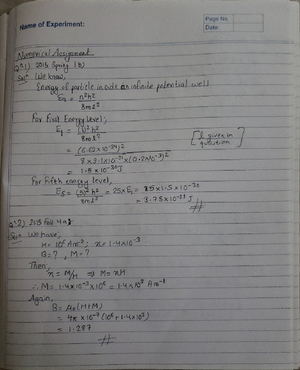 Name of Experiment:
Page No.
Date:
Numerical Assignment
Q.1) 2015 Spring 1(b)
Solⁿ We know,
Energy of particle inside an infinite potential well
En = n²h² / 8ml²
For First Energy level,
E₁ = (1)²h² / 8ml²
[l given in question]
= (6.62×10⁻³⁴)² / 8×9.1×10⁻³¹×(0.2×10⁻⁹)²
For Fifth energy level,
E₅ = (5)²h² / 8ml² = 25×E₁ = 25×1.5×10⁻²⁰
Q.2) 2015 Fall 4a
Solⁿ We have,
H = 10⁶ Am⁻¹; x = 1.4×10⁻³
B = ?, M = ?
Then,
x = M/H ⇒ M = xH
∴ M = 1.4×10⁻³×10⁶ = 1.4×10³ Am⁻¹
Again,
B = μ₀(H+M)
= 4π×10⁻⁷(10⁶+1.4×10³)
= 1.257